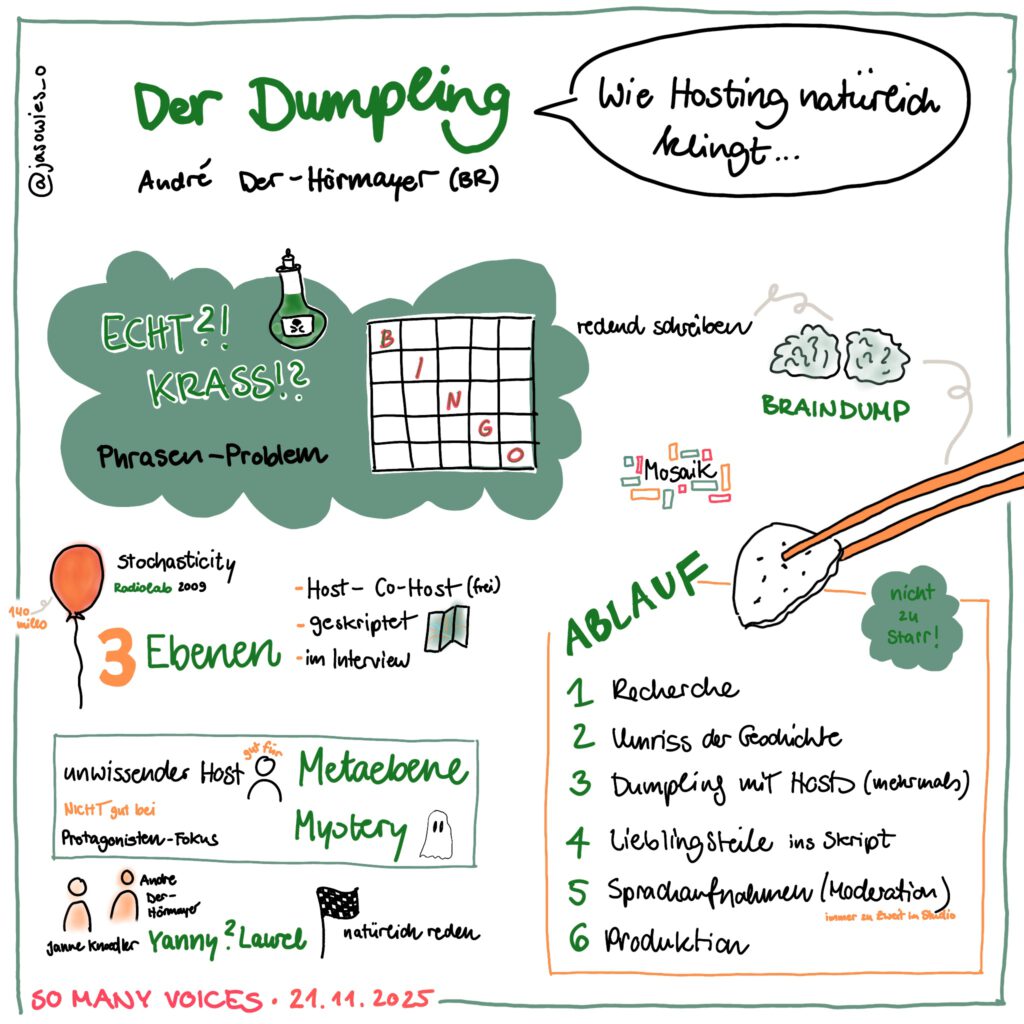 @jasowies_o
Der Dumpling
André Der-Hörmayer (BR)
Wie Hosting natürlich
klingt...
ECHT?!
KRASS!?
Phrasen-Problem
B
I
N
G
O
redend schreiben
BRAINDUMP
Mosaik
140
mille
Stochasticity
Radiolab 2009
3 Ebenen
- Host - Co-Host (frei)
- geskriptet
- im Interview
unwissender Host
gut für
Metaebene
Mystery
NICHT gut bei
Protagonisten-Fokus
Janne Knoedler
Andre
Der-
Hörmayer
Yanny? Lawel
natürlich reden
ABLAUF
nicht
zu
starr!
1 Recherche
2 Umriss der Geschichte
3 Dumpling mit Hosts (mehrmals)
4 Lieblingsteile ins Skript
5 Sprachaufnahmen (Moderation)
immer zu Zweit im Studio
6 Produktion
SO MANY VOICES • 21.11.2025